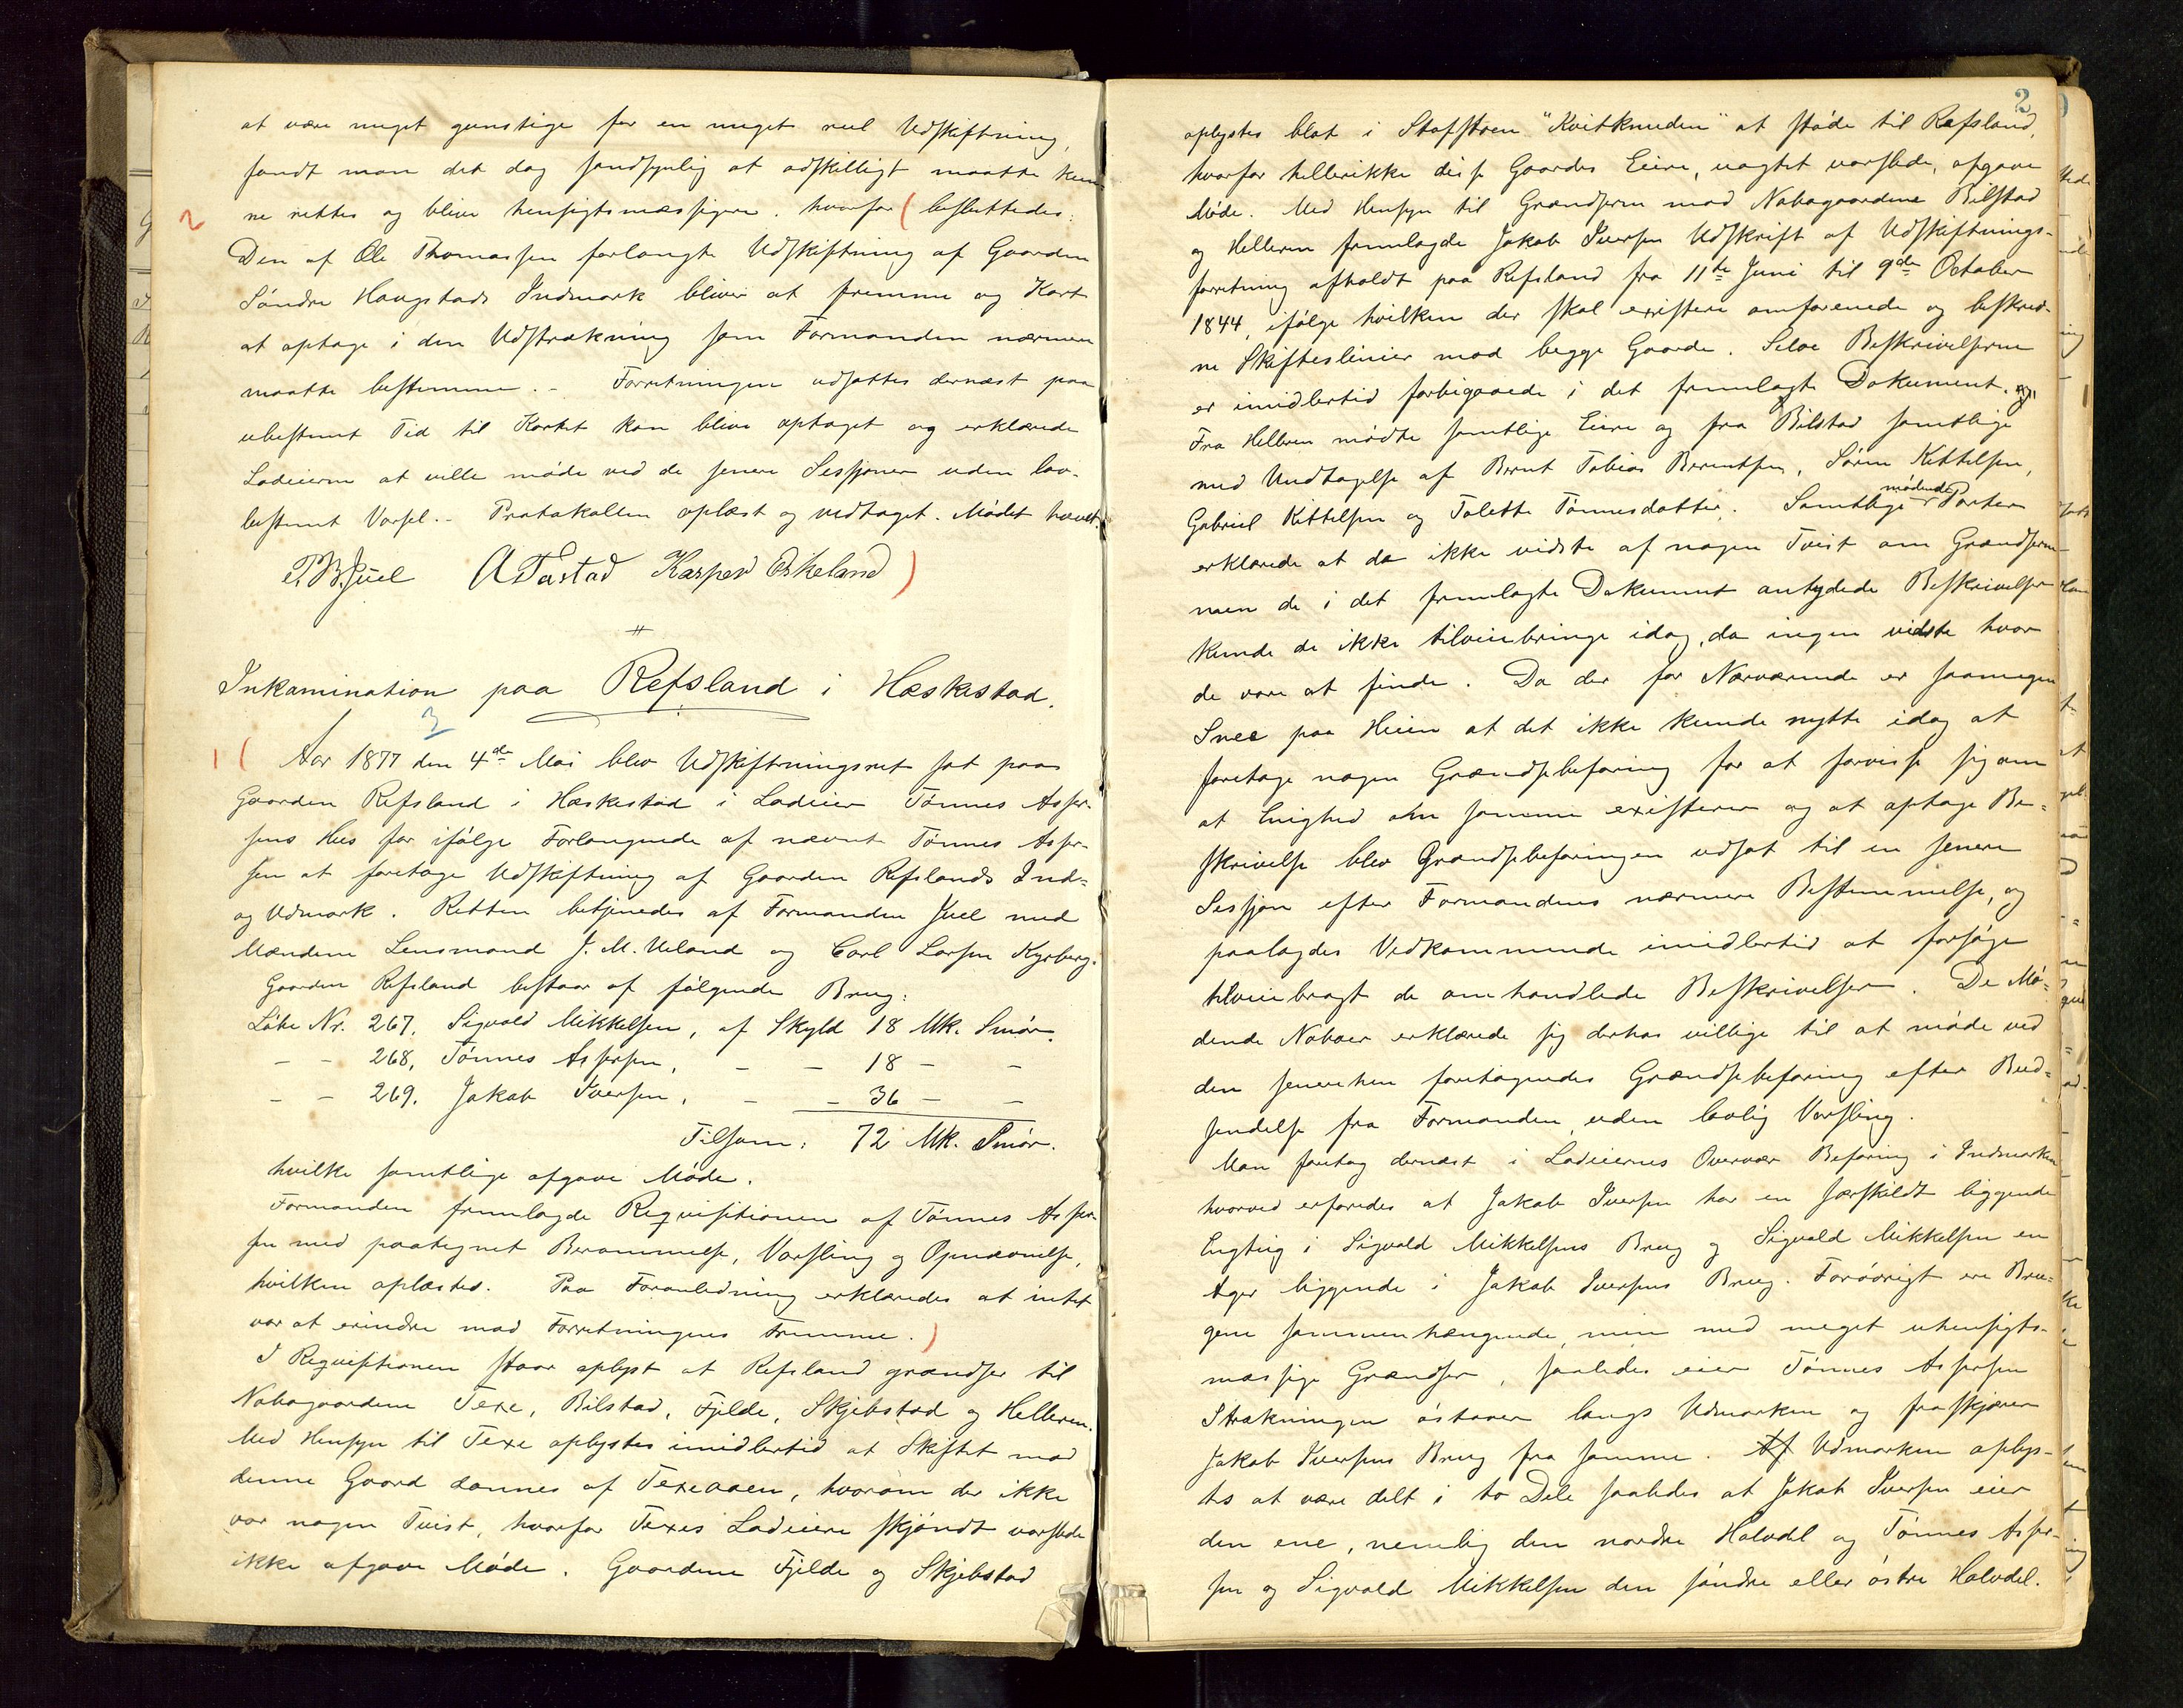 at være meget gunstige for en meget reel Udskiftning,
fandt man det dog sandsynlig at adskilligt maatte kun-
2
ne rettes og blive hensigtsmæssigere. hvorfor ( besluttedes:
Den af Ole Thomassen forlangte Udskiftning af Gaarden
Søndre Haugstads Indmark bliver at fremme og Kart
at optage i den Udstrækning som Formanden nærmere
maatte bestemme. - Forretningen udsattes dernæst paa
ubestemt Tid til Kartet kan blive optaget og erklærede
Lodeierne at ville møde ved de senere Sessjoner uden lov-
bestemt Varsel. - Protokollen oplæst og vedtaget. Mødet hævet.
P. B. Juel A Tastad Kasper Eskeland )
Inkamination paa Refsland i Heskestad.
3
1 ( Aar 1877 den 4de Mai blev Udskiftningsret sat paa
Gaarden Refsland i Heskestad i Lodeier Tønnes Asser-
sens Hus for ifølge Forlangende af nævnte Tønnes Asser-
sen at foretage Udskiftning af Gaarden Refslands Ind-
og Udmark. Retten betjenedes af Formanden Juel med
Mændene Lensmand J. M. Ueland og Carl Larsen Kysberg.
Gaarden Refsland bestaar af følgende Brug:
Løbe Nr. 267. Sigvald Mikkelsen, af Skyld 18 Mk. Smør.
- - 268, Tønnes Assersen, - - 18 - -
- - 269. Jakob Iversen, - - 36 - -
Tilsam: 72 Mk. Smør.
hvilke samtlige afgave Møde.
Formanden fremlagde Requisitionen af Tønnes Asser-
sen med paategnet Berammelse, Varsling og Opnævnelse,
hvilken oplæstes. Paa Foranledning erklæredes at intet
var at erindre mod Forretningens Fremme. )
I Requisitionen staar oplyst at Refsland grændser til
Nabogaardene Texe, Bilstad, Fjelde, Skjebstad og Helleren.
Med Hensyn til Texe oplystes imidlertid at Skiftet mod
denne Gaard dannes af Texeaaen, hvorom der ikke
var nogen Tvist, hvorfor Texes Lodeiere skjøndt varslede
ikke afgave Møde. Gaardene Fjelde og Skjebstad
2
oplystes blot i "Kvitknuden" at støde til Refsland,
hvorfor hellerikke disse Gaardes Eiere, uagtet varslede, afgave
Møde. Med Hensyn til Grændserne mod Nabogaardene Bilstad
og Helleren fremlagde Jakob Iversen Udskrift af Udskiftnings-
forretning afholdt paa Refsland fra 11te Juni til 9de October
1844, ifølge hvilken der skal existere omforenede og beskrev-
ne Skifteslinier mod begge Gaarde. Selve Beskrivelserne
er imidlertid forbigaaede i det fremlagte Dokument.
Fra Helleren mødte samtlige Eiere og fra Bilstad samtlige
med Undtagelse af Bernt Tobias Berentsen, Søren Kittelsen,
Gabriel Kittelsen og Tolette Tønnesdatter. Samtlige mødende Parter
erklærede at de ikke vidste af nogen Tvist om Grændserne
men de i det fremlagte Dokument antydede Beskrivelser
kunde de ikke tilveiebringe idag, da ingen vidste hvor
de vare at finde. Da der for Nærværende er saamegen
Snee paa Heien at det ikke kunde nytte idag at
foretage nogen Grændsebefaring for at forvisse sig om
at Enighed om samme existerer og at optage Be-
skrivelse blev Grændsebefaringen udsat til en senere
Sessjon efter Formandens nærmere Bestemmelse, og
paalagdes Vedkommende imidlertid at forsøge
tilveiebragt de omhandlede Beskrivelser. De Mø-
dende Naboer erklærede sig derhos villige til at møde ved
den senerehen foretagendes Grændsebefaring efter Bud-
sendelse fra Formanden, uden lovlig Varsling.
Man foretog dernæst i Lodeiernes Overvær Befaring i Indmarken
hvorved erfaredes at Jakob Iversen har en særskildt liggende
Engteig i Sigvald Mikkelsens Brug og Sigvald Mikkelsen en
Ager liggende i Jakob Iversens Brug. Forøvrigt ere Bru-
gene sammenhængende, men med meget uhensigts-
mæssige Grændser, saaledes eier Tønnes Assersen
Strækningen østover langs Udmarken og fraskjærer
Jakob Iversens Brug fra samme. Af Udmarken oplys-
tes at være delt i to Dele saaledes at Jakob Iversen eier
den ene, nemlig den nordre Halvdel og Tønnes Asser-
sen og Sigvald Mikkelsen den søndre eller østre Halvdel.